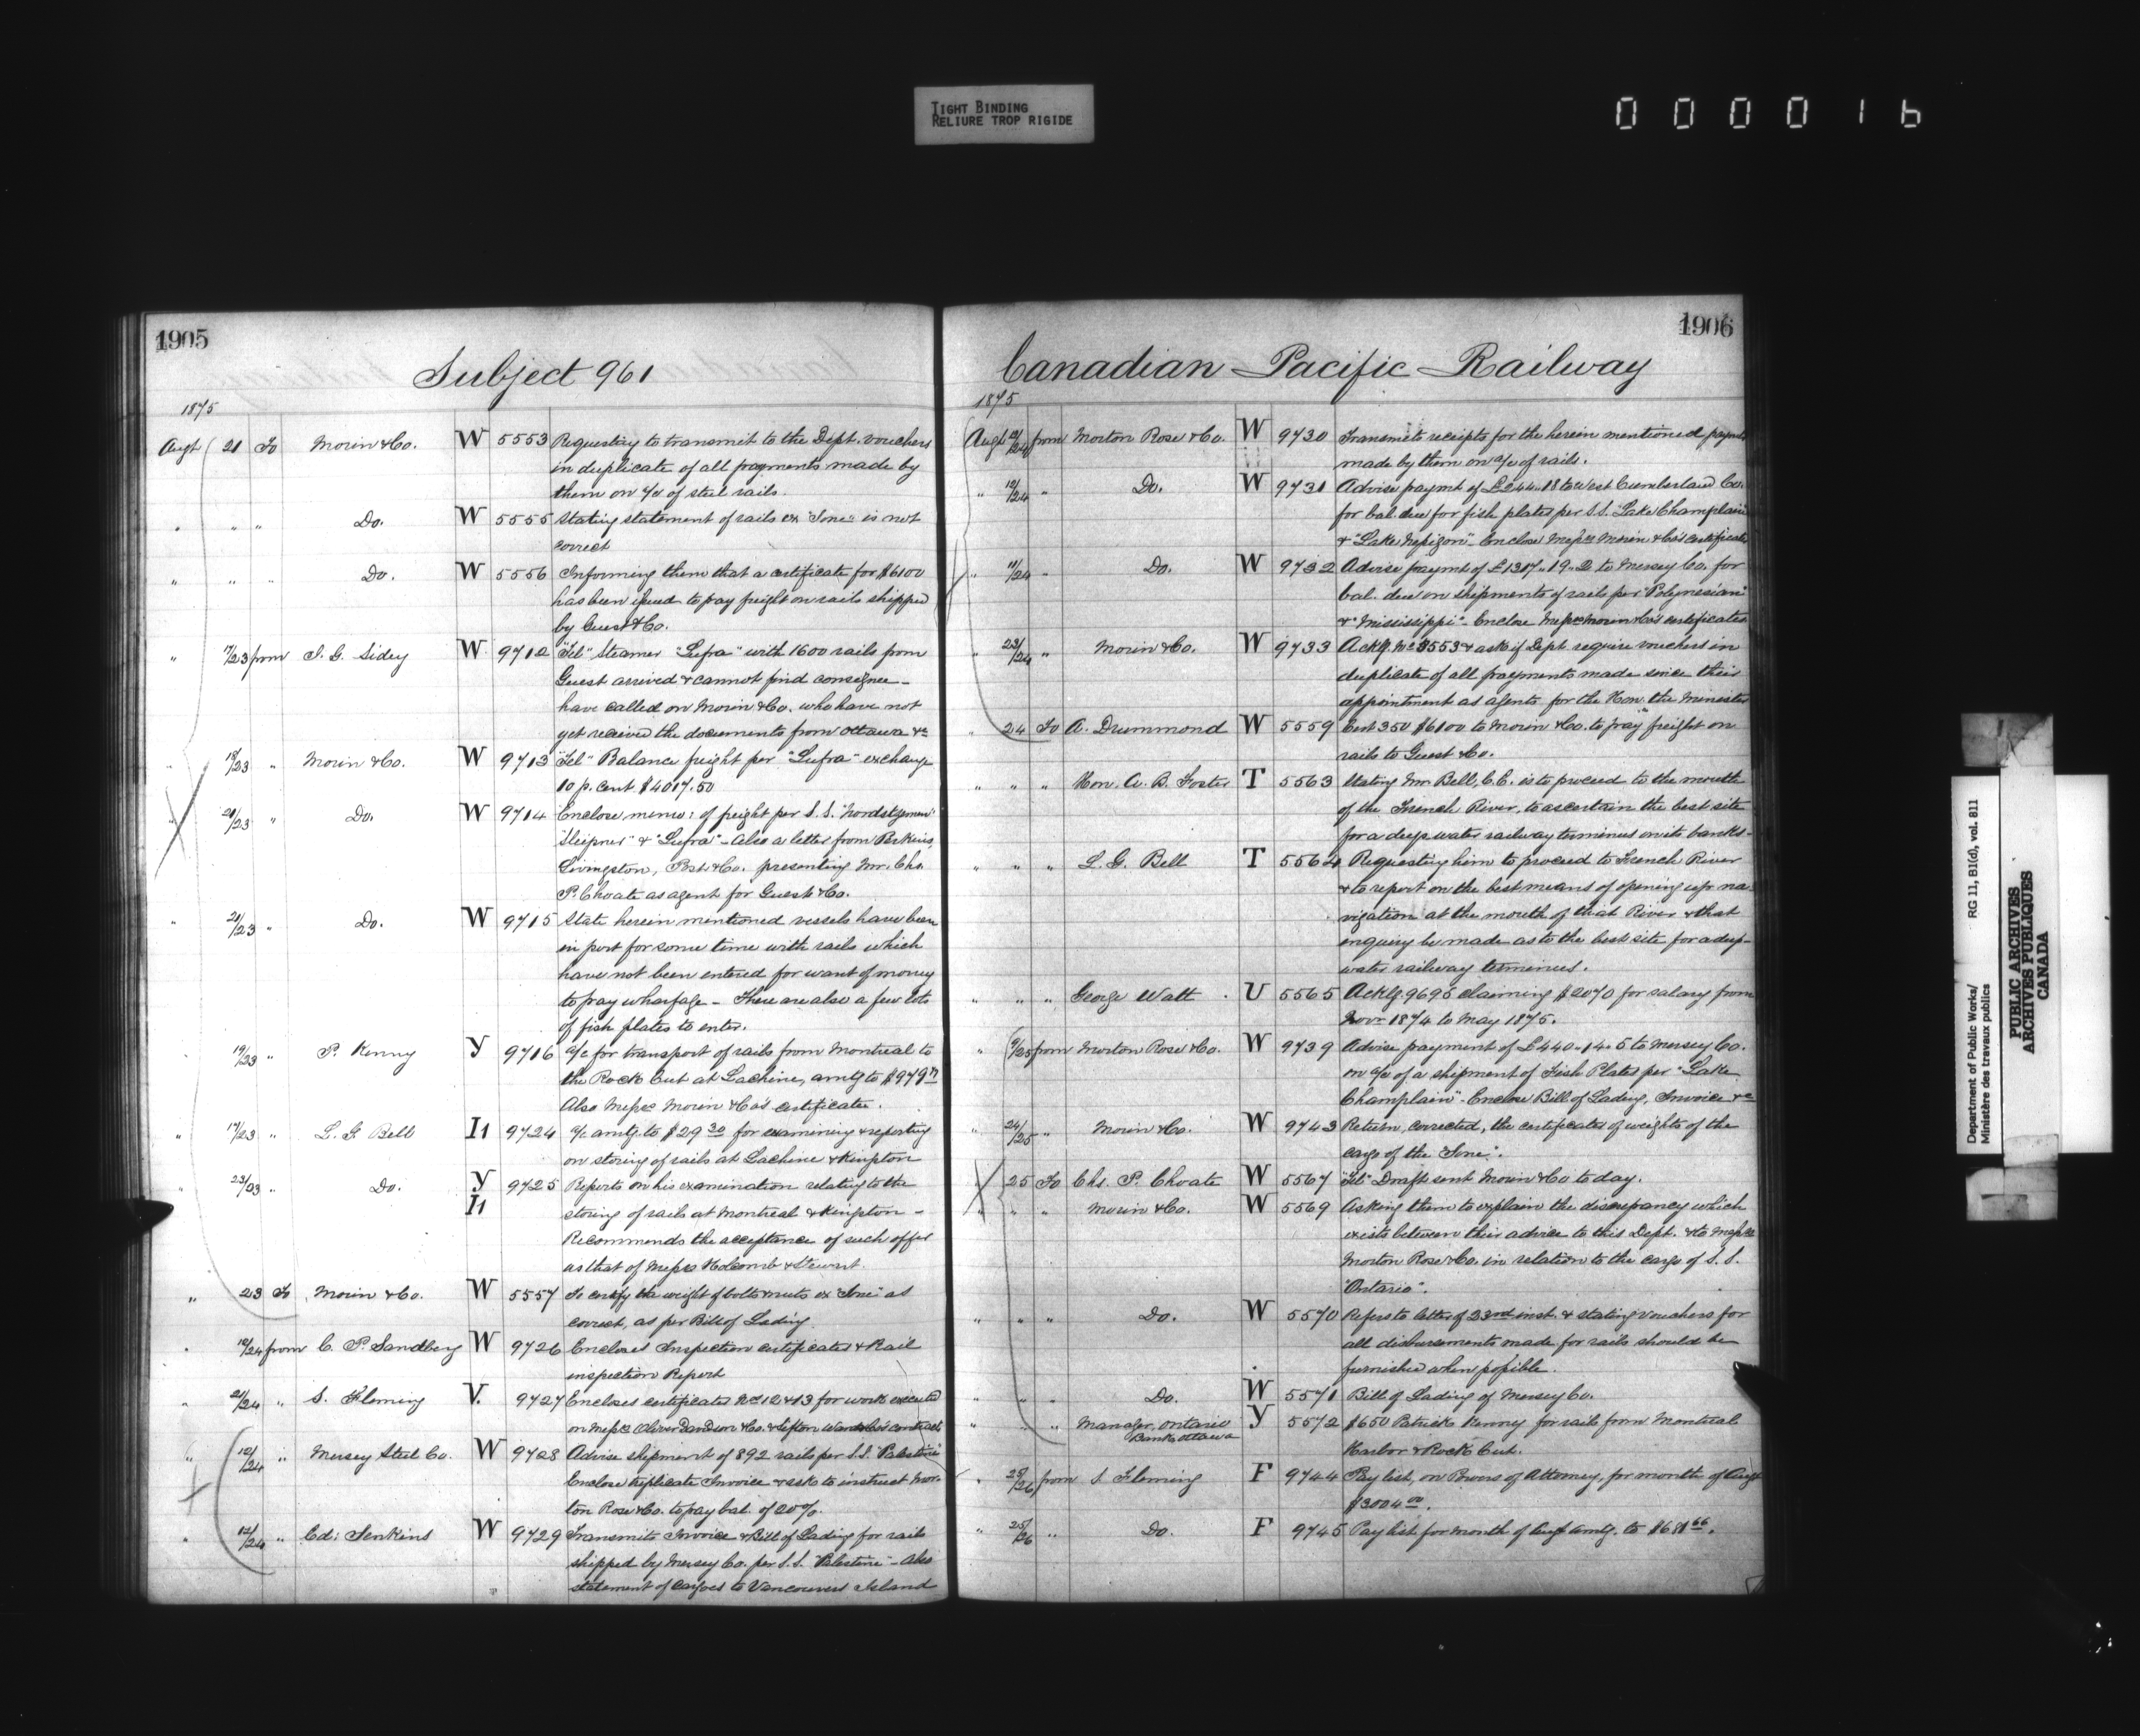 TIGHT BINDING
RELIURE TROP RIGIDE
0000016
1905
Subject 961
1875
Augt 21 To Morin & Co. W 5553 Requesting to transmit to the Dept. vouchers
in duplicate of all payments made by
them on a/c of steel rails.
" " " Do. W 5555 Stating statement of rails ex "Ione" is not
correct
" " " Do. W 5556 Informing them that a certificate for $6100
has been issued to pay freight on rails shipped
by Guest & Co.
" 17/23 from J. G. Sidey W 9712 "Tel" Steamer "Lufra" with 1600 rails from
Guest arrived & cannot find consignee -
have called on Morin & Co. who have not
yet received the documents from Ottawa &c
" 18/23 " Morin & Co. W 9713 "Tel" Balance freight per "Lufra" exchange
10 p. cent $4017.50
" 20/23 " Do. W 9714 Enclose memo: of freight per S.S.
"Sleipner" & "Lufra" - Also a letter from Perkins,
Livingston, Post & Co. presenting Mr. Chs.
P. Choate as agent for Guest & Co.
" 21/23 " Do. W 9715 State herein mentioned vessels have been
in port for some time with rails which
have not been entered for want of money
to pay wharfage - There are also a few lots
of fish plates to enter.
" 19/23 " P. Kenny Y 9716 a/c for transport of rails from Montreal to
the Rock Cut at Lachine, amtg to $979
Also Messrs Morin & Co's certificate.
" 17/23 " L. G. Bell I1 9724 a/c amtg. to $29 30 for examining & reporting
on storing of rails at Lachine & Kingston
" 23/23 " Do. Y 9725 Reports on his examination relating to the
I1 storing of rails at Montreal & Kingston -
Recommends the acceptance of such offer
as that of Messrs Holcomb & Stewart.
" 23 To Morin & Co. W 5557 To certify the weight of bolts & nuts ex "Ione" as
correct, as per Bill of Lading
" 10/24 from C. P. Sandberg W 9726 Encloses Inspection certificates & Rail
inspection Report
" 21/24 " S. Fleming V. 9727 Encloses certificates Nos 12 & 13 for work executed
on Messrs Oliver Davidson & Co. & Sifton Ward & Co's contracts
" 12/24 " Mersey Steel Co. W 9728 Advise shipment of 892 rails per S.S. "Palestine"
Enclose triplicate Invoice & ask to instruct Mor-
ton Rose & Co. to pay bal. of 20%.
" 12/24 " Ed: Jenkins W 9729 Transmits Invoice & Bill of Lading for rails
shipped by Mersey Co. per S.S. "Palestine" - Also
statement of cargoes to Vancouvers Island
1906
Canadian Pacific Railway
1875
Augt 12/24 from Morton Rose & Co. W 9730 Transmits receipts for the herein mentioned paymts
made by them on a/c of rails.
" 12/24 " Do. W 9731 Advise paymt of £244..18 to West Cumberland Co.
for bal. due for fish plates per S.S. "Lake Champlain"
& "Lake Nepigon" - Enclose Messrs Morin & Co's certificates
" 11/24 " Do. W 9732 Advise paymt of £1317..19..2 to Mersey Co. for
bal. due on shipments of rails per "Polynesian"
& "Mississippi" - Enclose Messrs Morin & Co's certificates
" 23/24 " Morin & Co. W 9733 Ackg. No 5553 & ask if Dept require vouchers in
duplicate of all payments made since their
appointment as agents for the Hon. the Minister
" 24 To A. Drummond W 5559 Cert 350 $6100 to Morin & Co. to pay freight on
rails to Guest & Co.
" " " Hon. A. B. Foster T 5563 Stating Mr. Bell, C.E. is to proceed to the mouth
of the French River, to ascertain the best site
for a deep water railway terminus on its banks -
" " " L. G. Bell T 5564 Requesting him to proceed to French River
& to report on the best means of opening up na-
vigation at the mouth of that River & that
enquiry be made as to the best site for a deep-
water railway terminus.
" " " George Watt U 5565 Ackg. 9695 claiming $2070 for salary from
Novr 1874 to May 1875.
" 9/25 from Morton Rose & Co. W 9739 Advise payment of £440..14..5 to Mersey Co.
on a/c of a shipment of Fish Plates per "Lake
Champlain" - Enclose Bill of Lading, Invoice &c
" 24/25 " Morin & Co. W 9743 Return, corrected, the certificates of weights of the
cargo of the "Ione".
" 25 To Chs. P. Choate W 5567 "Tel" Draft sent Morin & Co to day.
" " " Morin & Co. W 5569 Asking them to explain the discrepancy which
exists between their advice to this Dept. & to Messrs
Morton Rose & Co. in relation to the cargo of S.S.
"Ontario".
" " " Do. W 5570 Refers to letter of 23rd inst. & stating vouchers for
all disbursements made for rails should be
furnished when possible.
" " " Do. W 5571 Bill of Lading of Mersey Co.
" " " Manager, Ontario Y 5572 $650 Patrick Kenny for rails from Montreal
Bank Ottawa
Harbor & Rock Cut.
" 25/26 from S. Fleming F 9744 Pay list, on Powers of Attorney, for month of Augt
$3004 00.
" 25/26 " Do. F 9745 Pay list for month of Augt amtg. to $681 66.
Department of Public Works/ RG 11, B1(d), vol. 811
Ministère des travaux publics
PUBLIC ARCHIVES
ARCHIVES PUBLIQUES
CANADA